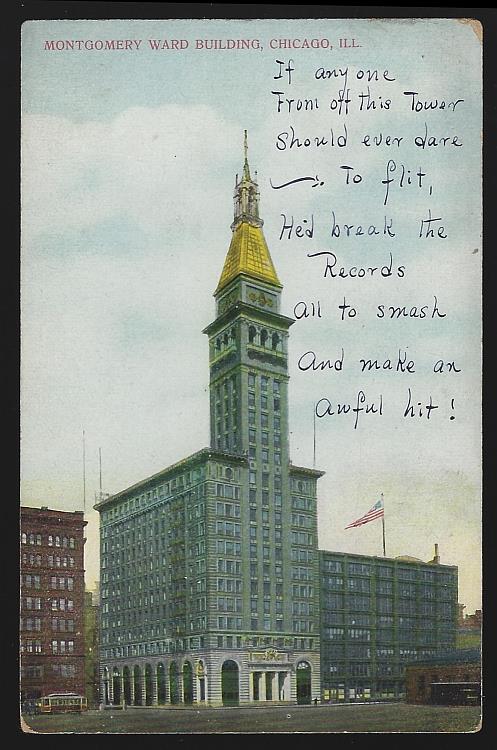 MONTGOMERY WARD BUILDING, CHICAGO, ILL.
If any one
From off this Tower
Should ever dare
To flit,
He'd break the
Records
All to smash
And make an
Awful hit!